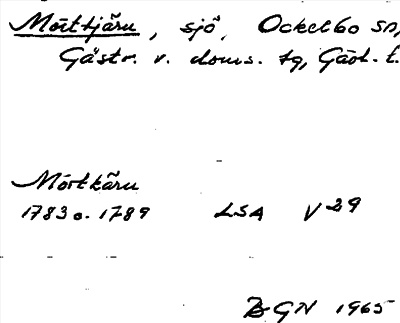 Mörttjärn, sjö, Ockelbo sn,
Gästr. v. doms. tg, Gäst. l.
Mörtkärn
1783 o. 1789 LSA V 29
BGN 1965